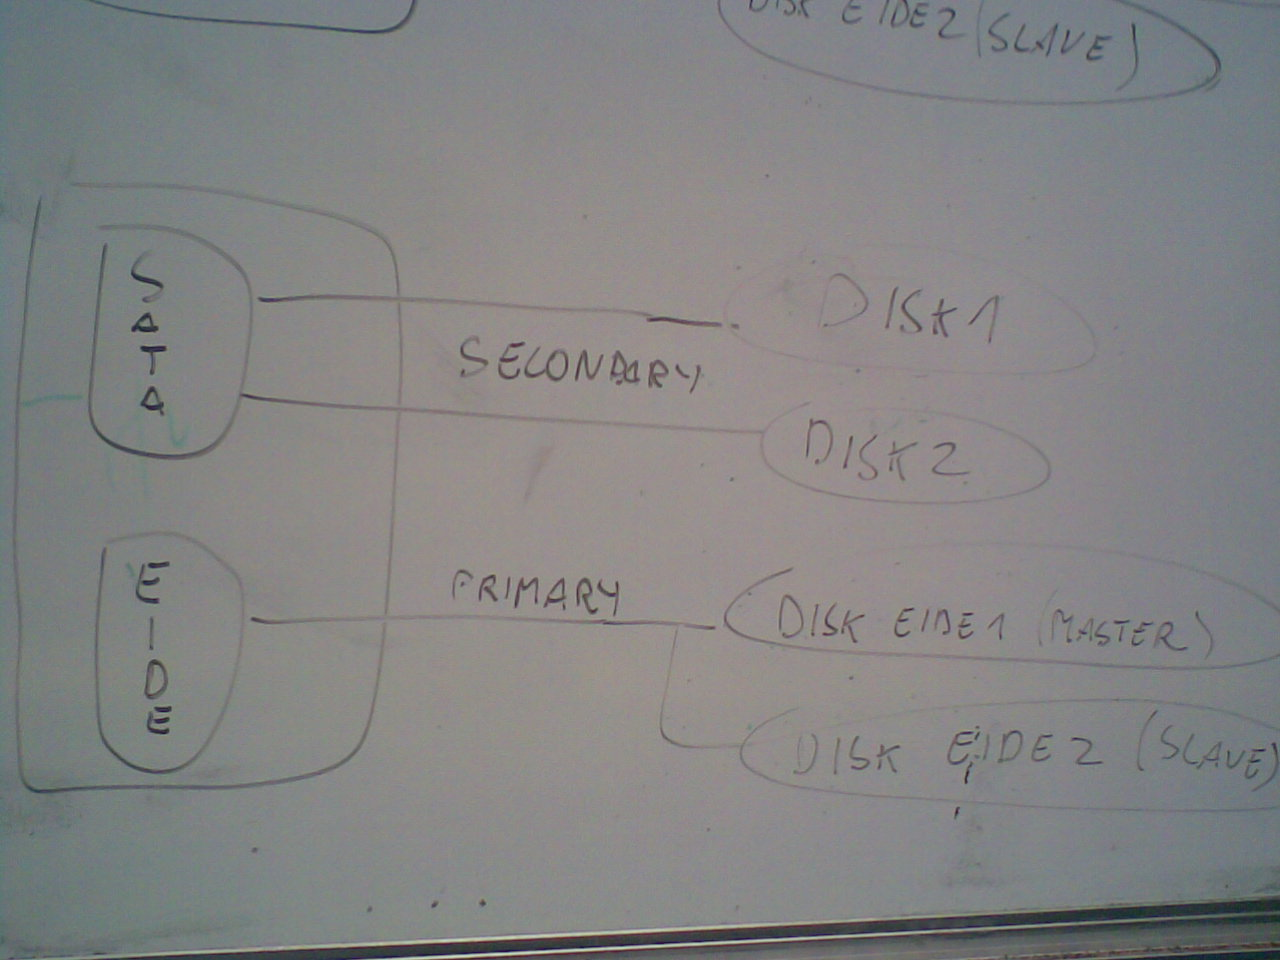 DISK EIDE2 (SLAVE)
SATA
DISK1
SECONDARY
DISK2
EIDE
PRIMARY
DISK EIDE1 (MASTER)
DISK EIDE2 (SLAVE)